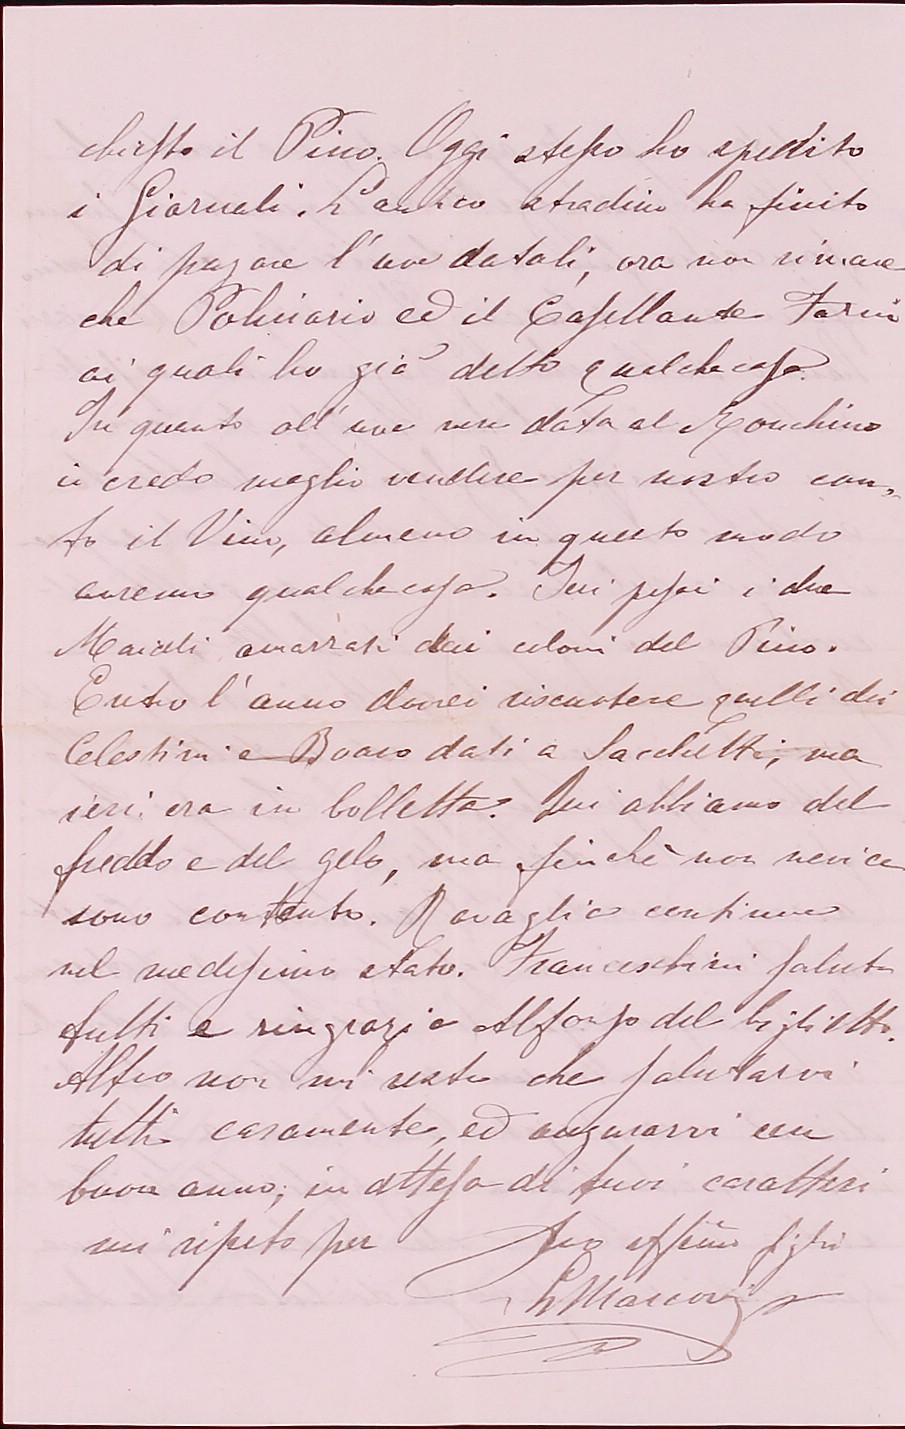 chiesto il Pino. Oggi stesso ho spedito
i Giornali. L'antico stradino ha finito
di pagare l'uve datoli, ora non rimane
che Polinario ed il Casellante Farin
ai quali ho già detto qualchecosa.
In quanto all'uve nere data al Monchino
io credo meglio vendere per nostro con-
to il Vino, almeno in questo modo
avremo qualchecosa. Ieri pesai i due
Maiali amazzati dai coloni del Pino.
Entro l'anno dovrei riscuotere quelli dei
Celestini e Boaro dati a Sacchetti, ma
ieri era in bolletta. Qui abbiamo del
freddo e del gelo, ma finchè non nevica
sono contento. Ravaglia continua
nel medesimo stato. Franceschini saluta
tutti e ringrazia Alfonso del biglietto.
Altro non mi resta che salutarvi
tutti caramente, ed augurarvi un
buon anno; in attesa di suoi caratteri
mi ripeto per Suo affmo figlio
L Marconi